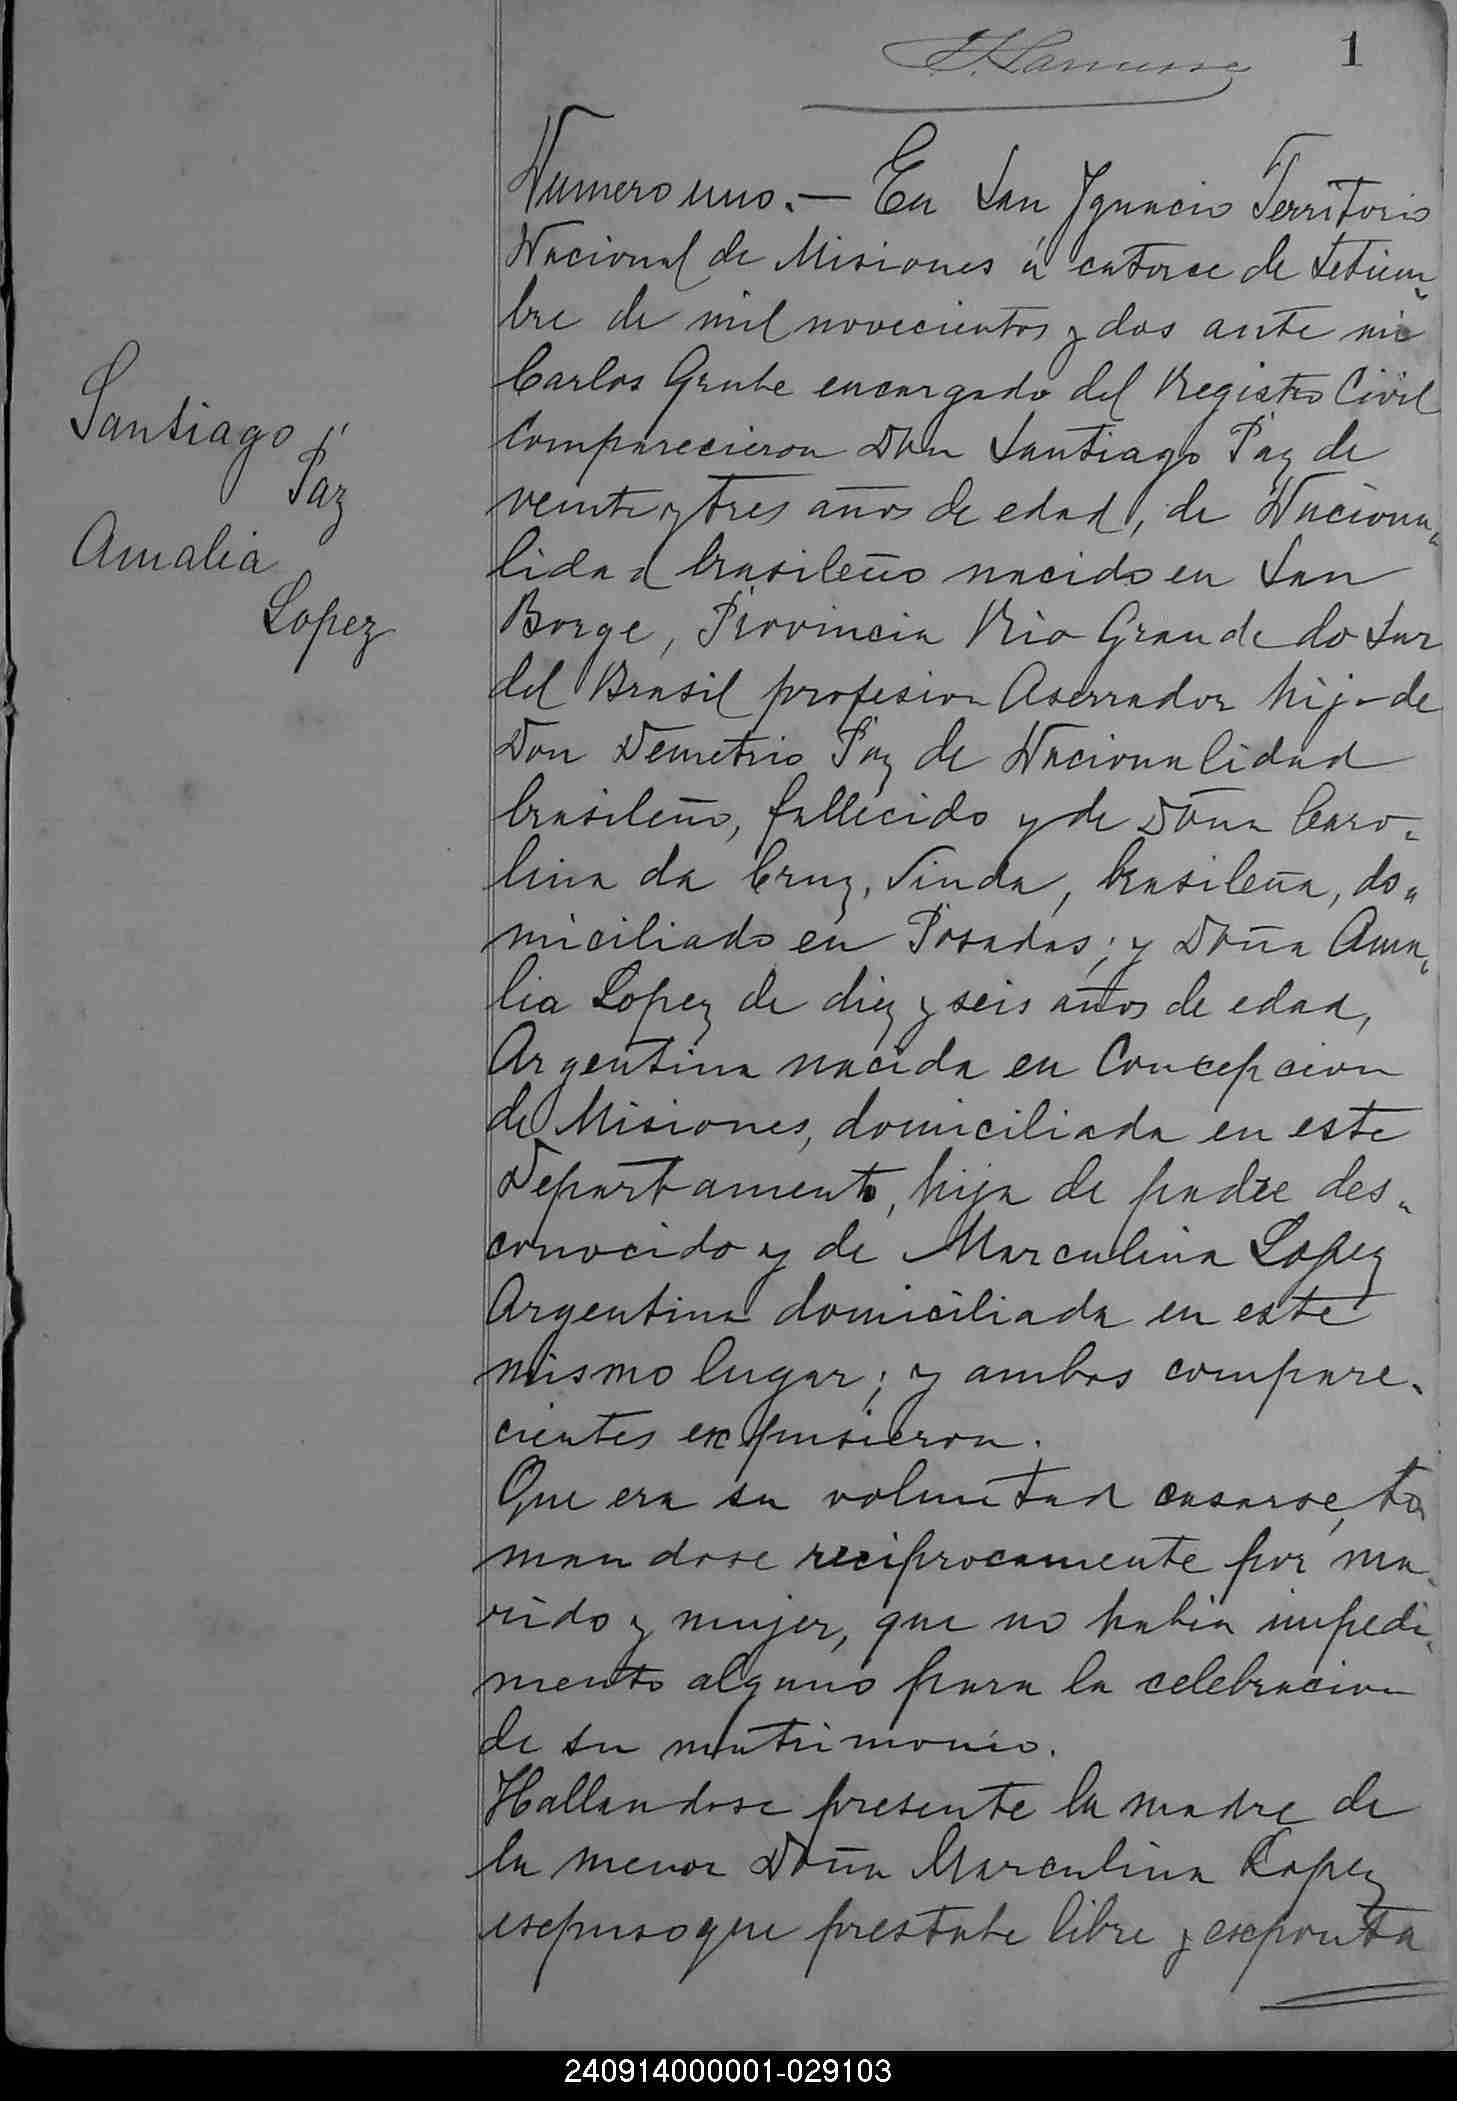 1
Numero uno.— En San Ygnacio Territorio
Nacional de Misiones á catorce de Setiem-
bre de mil novecientos y dos ante mi
Carlos Grube encargado del Registro Civil
Comparecieron Don Santiago Paz de
veinte y tres años de edad, de Naciona-
lidad brasileño nacido en San
Borge, Provincia Rio Grande do Sur
del Brasil profesion Aserrador hijo de
Don Demetrio Paz de Nacionalidad
brasileño, fallecido y de Doña Caro-
lina da Cruz, viuda, brasileña, do-
miciliado en Posadas; y Doña Ama-
lia Lopez de diez y seis años de edad,
Argentina nacida en Concepcion
de Misiones, domiciliada en este
Departamento, hija de padre des-
conocido y de Marculina Lopez
Argentina domiciliada en este
mismo lugar; y ambos compare-
cientes expusieron.
Que era su voluntad casarse, to
mandose reciprocamente por ma-
rido y mujer, que no habia impedi-
mento alguno para la celebracion
de su matrimonio.
Hallandose presente la madre de
la menor Doña Marculina Lopez
expuso que prestabe libre y exponta
Santiago
Paz
Amalia
Lopez
240914000001-029103